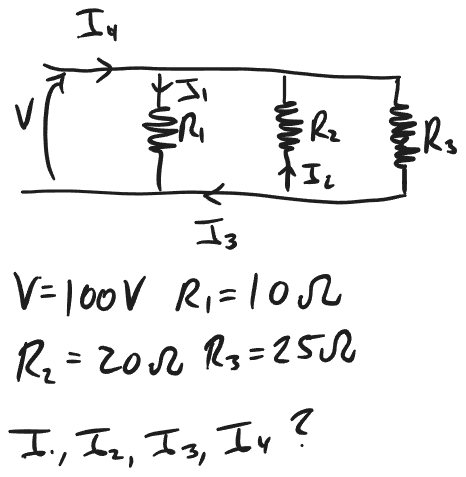 I₄
I₁
V R₁ R₂ R₃
I₂
I₃
V=100V R₁=10Ω
R₂=20Ω R₃=25Ω
I₁, I₂, I₃, I₄ ?